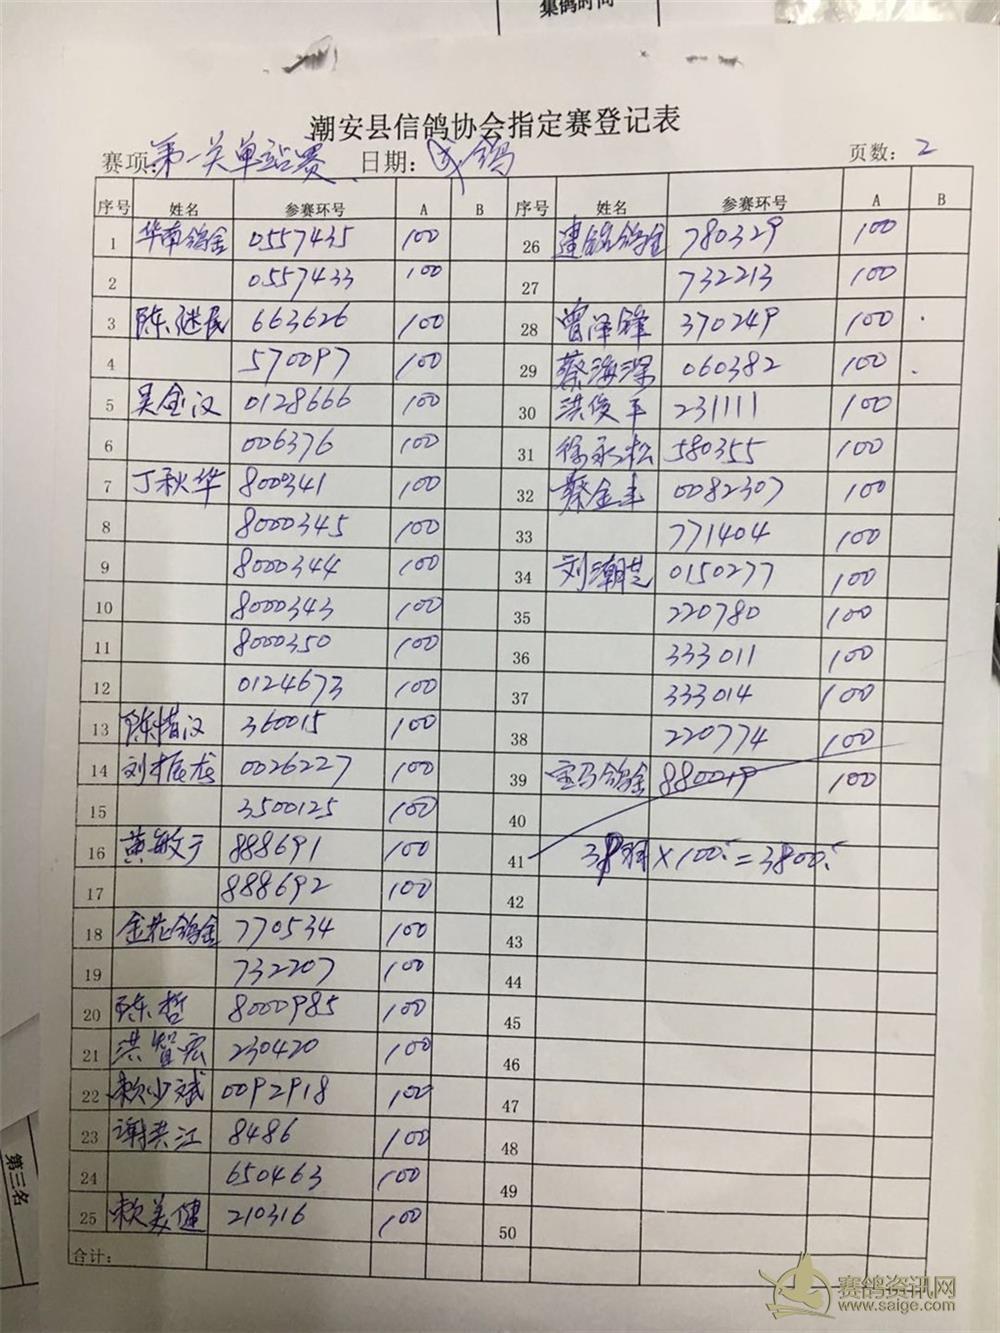 集鸽时间
潮安县信鸽协会指定赛登记表
赛项:第一关单站赛 日期: 成鸽 页数: 2
序号 姓名 参赛环号 A B 序号 姓名 参赛环号 A B
1 华南鸽舍 0557435 100 26 建铭鸽舍 780329 100
2 0557433 100 27 732213 100
3 陈继民 663626 100 28 曾泽锋 370249 100
4 570097 100 29 蔡海深 060382 100
5 吴金汉 0128666 100 30 洪俊平 231111 100
6 006376 100 31 徐永松 580355 100
7 丁秋华 800341 100 32 蔡金丰 0082307 100
8 8000345 100 33 771404 100
9 8000344 100 34 刘潮 0150277 100
10 8000343 100 35 220780 100
11 8000350 100 36 333011 100
12 0124673 100 37 333014 100
13 陈惜汉 360015 100 38 220774 100
14 刘振龙 0026227 100 39 宝马鸽舍 880019 100
15 3500125 100 40
16 黄敏 888691 100 41 38羽×100=3800
17 888692 100 42
18 金花鸽舍 770534 100 43
19 732207 100 44
20 陈哲 8000985 100 45
21 洪智宏 230420 100 46
22 赖少斌 0092918 100 47
23 谢洪江 8486 100 48
24 650463 100 49
25 赖美健 210316 100 50
合计:
第三名
赛鸽资讯网
www.saige.com